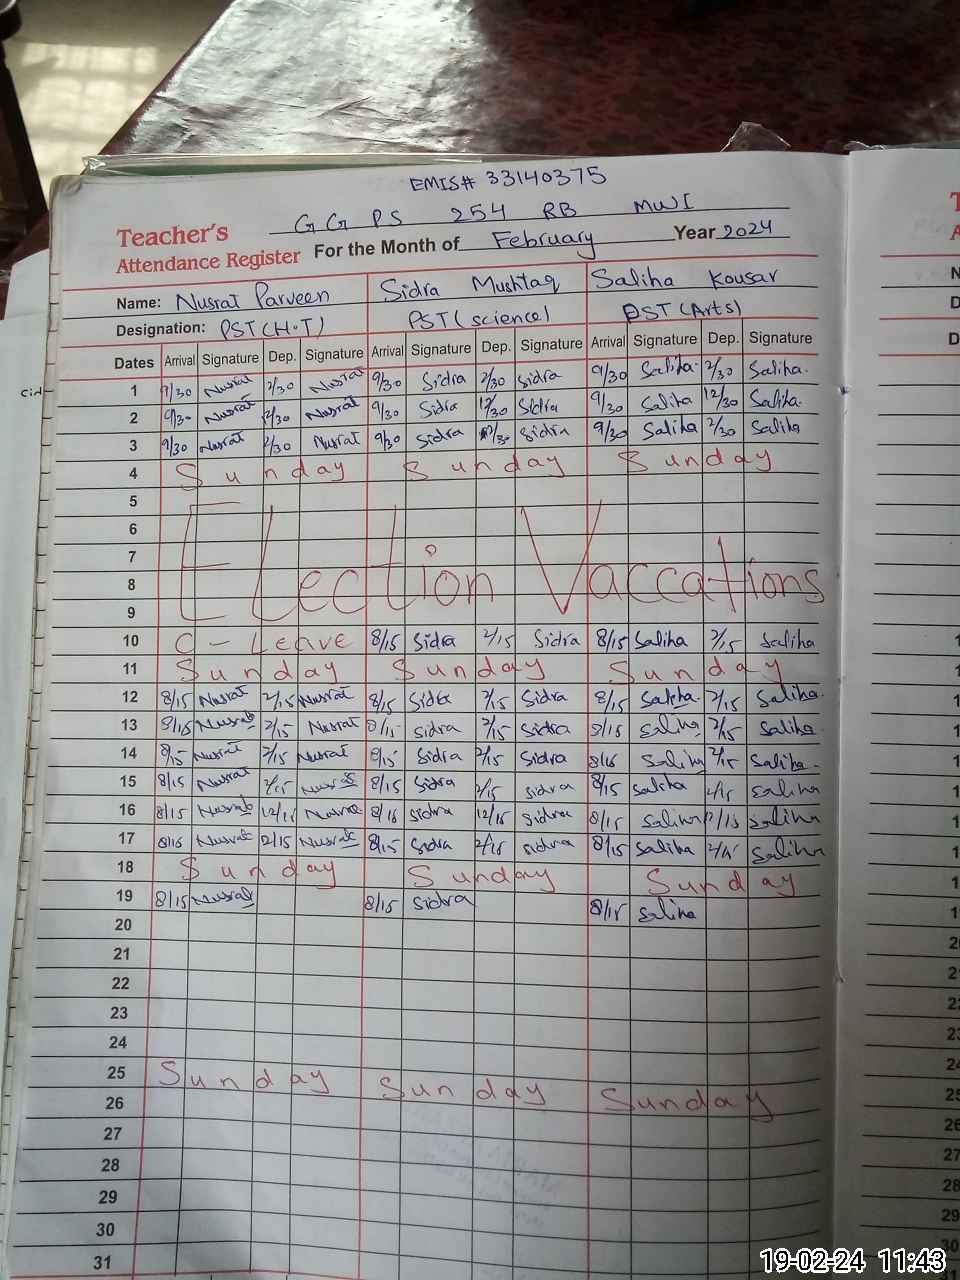 EMIS# 33140375
Teacher's GGPS 254 RB MWI
Attendance Register For the Month of February Year 2024
Name: Nusrat Parveen Sidra Mushtaq Saliha Kousar
Designation: PST(H.T) PST(science) PST(Arts)
Dates Arrival Signature Dep. Signature Arrival Signature Dep. Signature Arrival Signature Dep. Signature
1 9/30 Nusrat 2/30 Nusrat 9/30 Sidra 2/30 Sidra 9/30 Saliha 2/30 Saliha
2 9/30 Nusrat 2/30 Nusrat 9/30 Sidra 12/30 Sidra 9/30 Saliha 12/30 Saliha
3 9/30 Nusrat 2/30 Nusrat 9/30 Sidra Sidra 9/30 Saliha 2/30 Saliha
4 Sunday Sunday Sunday
5
6
7
8 Election Vaccations
9
10 C-Leave 8/15 Sidra 2/15 Sidra 8/15 Saliha 2/15 Saliha
11 Sunday Sunday Sunday
12 8/15 Nusrat 2/15 Nusrat 8/15 Sidra 2/15 Sidra 8/15 Saliha 2/15 Saliha
13 8/15 Nusrat 2/15 Nusrat 8/15 Sidra 2/15 Sidra 8/15 Saliha 2/15 Saliha
14 8/15 Nusrat 2/15 Nusrat 8/15 Sidra 2/15 Sidra 8/15 Saliha 2/15 Saliha
15 8/15 Nusrat 2/15 Nusrat 8/15 Sidra 2/15 Sidra 8/15 Saliha 2/15 Saliha
16 8/15 Nusrat 12/15 Nusrat 8/15 Sidra 12/15 Sidra 8/15 Saliha 12/15 Saliha
17 8/15 Nusrat 2/15 Nusrat 8/15 Sidra 2/15 Sidra 8/15 Saliha 2/15 Saliha
18 Sunday Sunday Sunday
19 8/15 Nusrat 8/15 Sidra 8/15 Saliha
20
21
22
23
24
25 Sunday Sunday Sunday
26
27
28
29
30
31
19-02-24 11:43